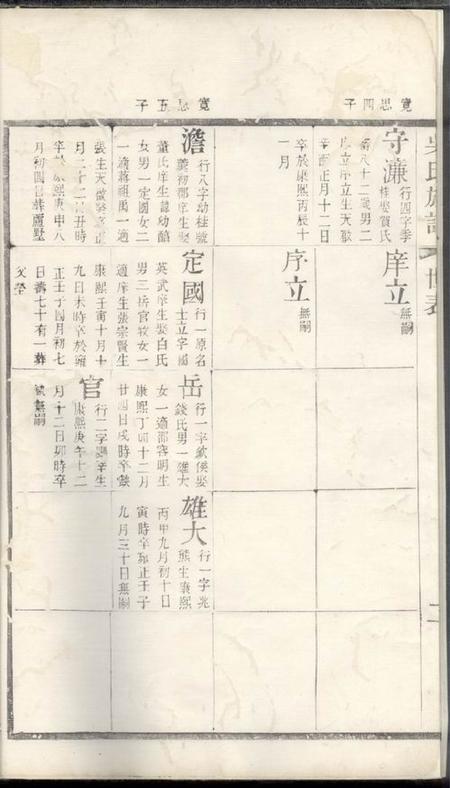 寬思四子
守濂
行四字季
桂娶賀氏
壽八十二歲男二
庠立序立生天啟
辛酉正月十二日
卒於康熙丙辰十
一月
庠立 無嗣
序立 無嗣
寬思五子
澹
行八字幼桂號
董氏庠生
女男一定國女二
一適蔣祖禹一適
張生天啟
月二十二日丑時
卒於康熙庚申八
月初四日葬蘆墅
定國
行一原名
士立字
英武庠生娶白氏
男三岳官牧女一
適庠生張宗賢生
康熙壬寅十月十
九日未時卒於雍
正壬子四月初七
日壽七十有一葬
父塋
岳
行一字
錢氏男一雄大
女一適邵容明生
康熙丁卯十二月
廿四日戌時卒
官
行二字
康熙庚午十二
月十二日卯時卒
無嗣
雄大
行一字兆
熊生康熙
丙申九月初十日
寅時卒雍正壬子
九月三十日無嗣